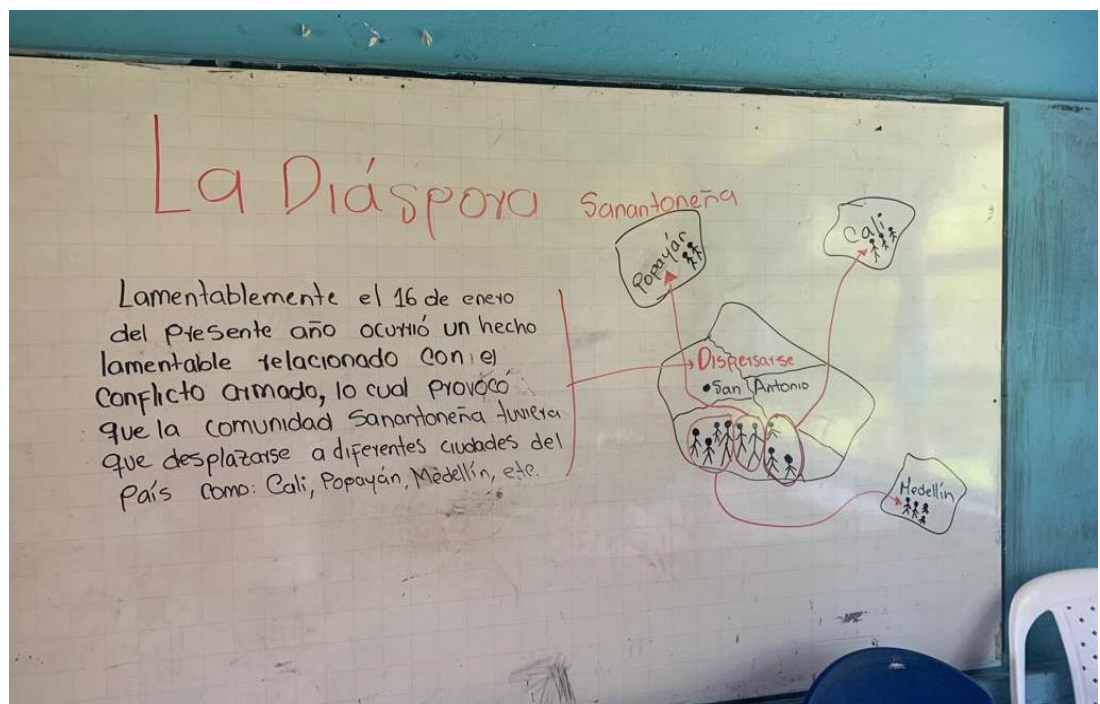 La Diáspora Sanantoneña
Lamentablemente el 16 de enero
del presente año ocurrió un hecho
lamentable relacionado con el
conflicto armado, lo cual provocó
que la comunidad Sanantoneña tuviera
que desplazarse a diferentes ciudades del
país como: Cali, Popayán, Medellín, etc.
Popayán
Cali
Dispersarse
San Antonio
Medellín